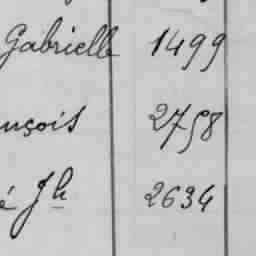 Gabrielle 1499
nçois 2758
é Jh 2634